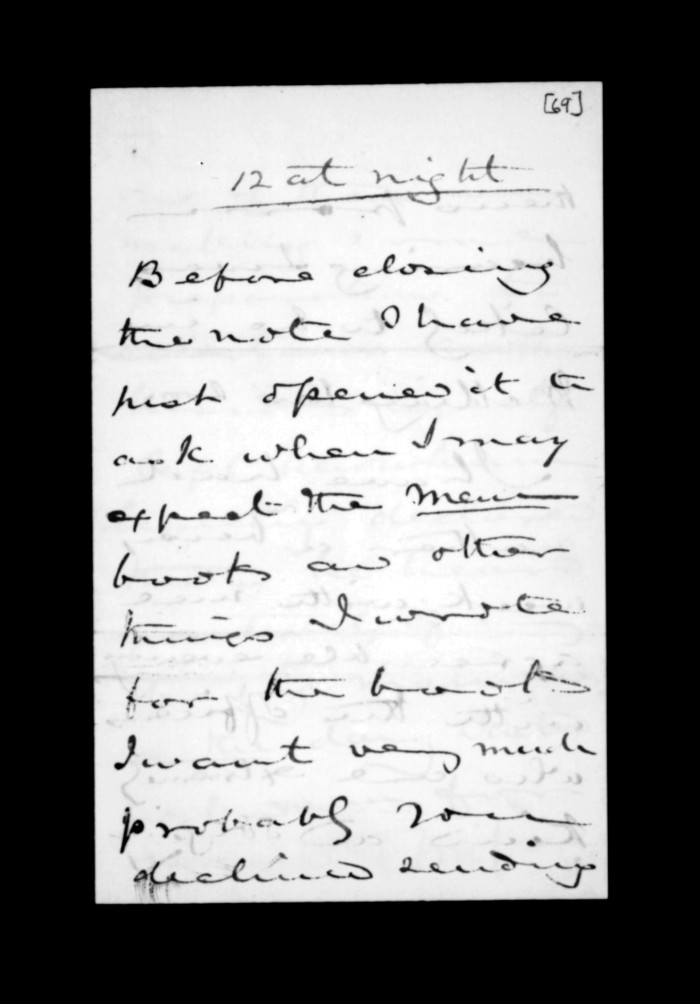 [69]
12 at night
Before closing
the note I have
just opened it to
ask when I may
expect the Mem
books and other
things I wrote
for the books
I want very much
probably you
declined sending